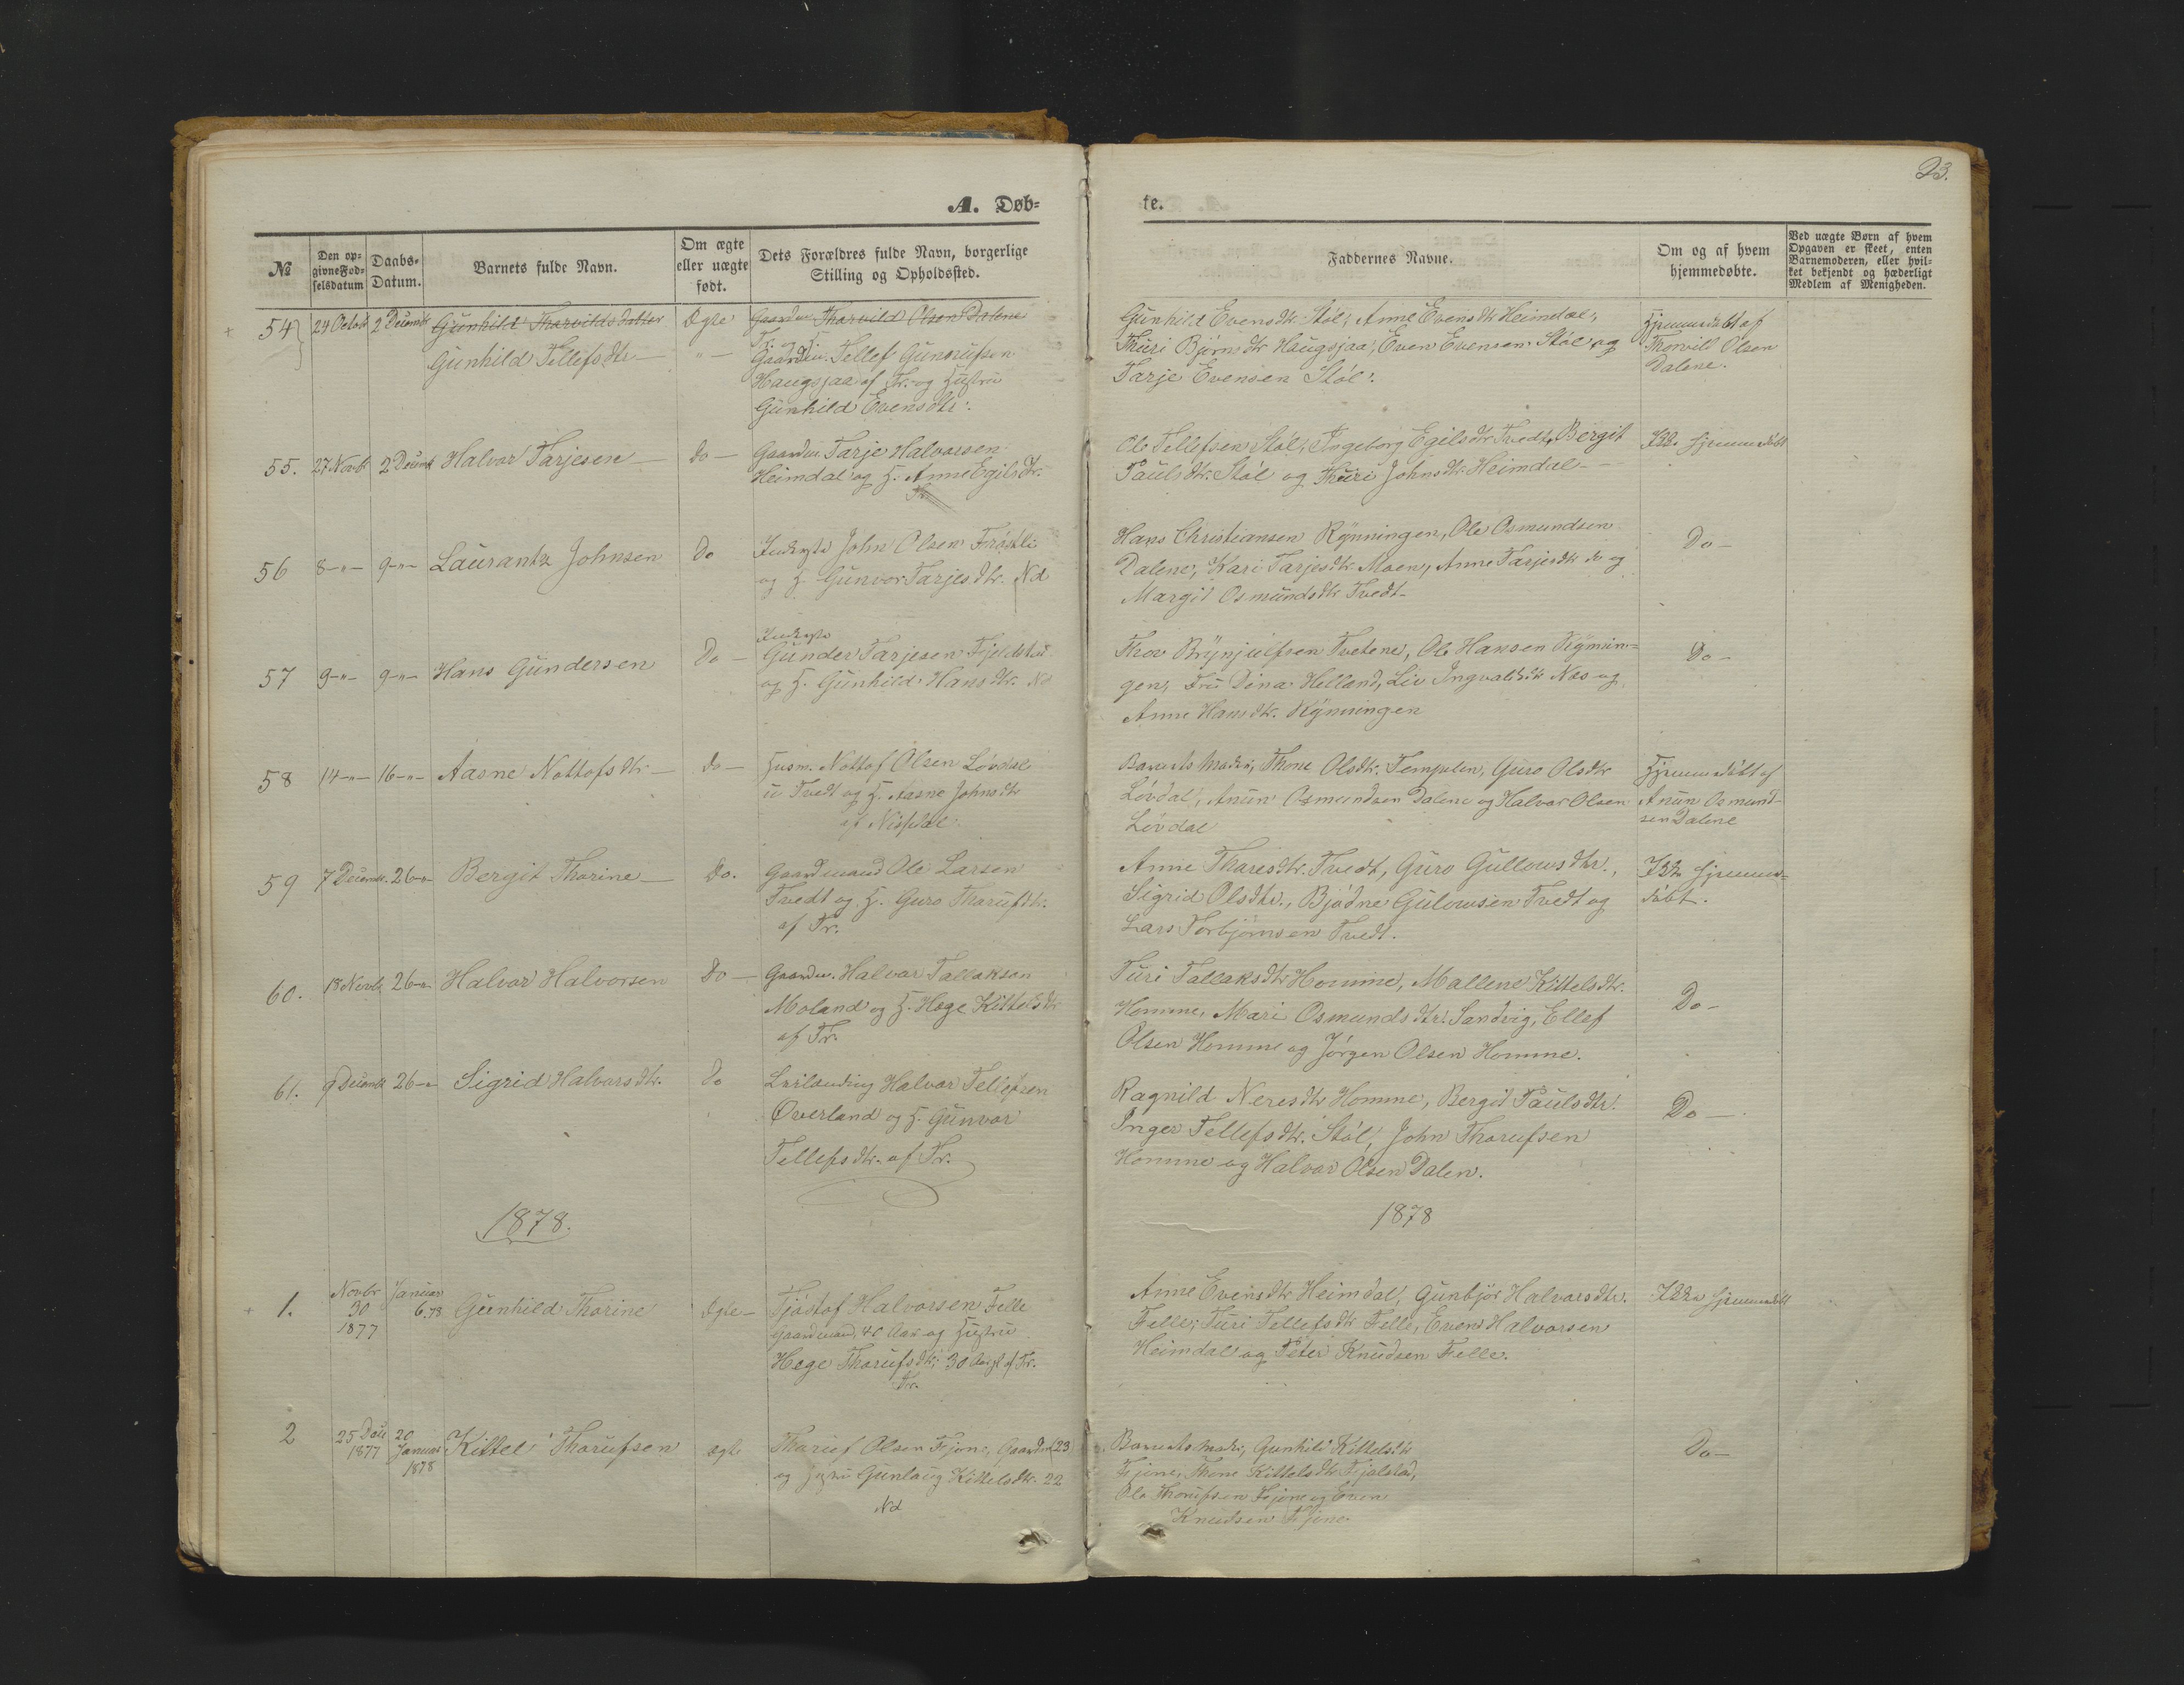 A. Døb-
№
Den op-
givne Fød-
selsdatum
Daabs-
Datum.
Barnets fulde Navn.
Om ægte
eller uægte
født.
Dets Forældres fulde Navn, borgerlige
Stilling og Opholdssted.
54 24 Octob 2 Decemb Gunhild Tharvildsdatter Ægte Gaardm. Tharvild Olsen Dalene
Gunhild Tellefsdtr — " — Gaardm. Tellef Gunvufsen
Haugsjaa af Tr. og Hustru
Gunhild Evensdtr.
55. 27 Novb 2 Decemb Halvor Tarjesen — do — Gaardm Tarje Halvorsen
Heimdal og H. Anne Egilsdtr.
56 8 – " – 9 – " – Laurantz Johnsen Do John Olsen Frøstli
og H. Gunvor Tarjesdtr. Nd
57 9 – " – 9 – " – Hans Gundersen Do — Gunder Tarjesen Fjeldstad
og H. Gunhild Hansdtr. Nd
58 14 – " – 16 – " – Aasne Nottofsdtr — do — Husm. Nottof Olsen Løvdal
u Tvedt og H. Aasne Johnsdtr
af Nisdal.
59 7 Decemb. 26 – " – Bergit Thorine — do. Gaardmand Ole Larsen
Tvedt og H. Guro Tharufsdtr.
af Tr.
60. 18 Novb 26 – " – Halvor Halvorsen Do — Gaardm. Halvor Tallaksen
Moland og H. Hæge Kittelsdtr
af Tr.
61. 9 Decemb 26 – " Sigrid Halvorsdtr. do Leilænding Halvor Tellefsen
Øverland og H. Gunvor
Tellefsdtr. af Tr.
1878.
1. Novbr 30 1877 Januar 6. 78 Gunhild Thorine Ægte — Tjøstof Halvorsen Felle
Gaardmand, 40 Aar og Hustru
Hæge Tharufsdtr; 30 Aar af Tr.
Tr.
2 25 Dec 1877 20 Januar 1878 Kittel Tharufsen ægte Tharuf Olsen Fjone, Gaardm 23
og Hustru Gunlaug Kittelsdtr. 22
Nd
te.
23.
Faddernes Navne.
Om og af hvem
hjemmedøbte.
Ved uægte Børn af hvem
Opgaven er skeet, enten
Barnemoderen, eller hvil-
ket bekjendt og hæderligt
Medlem af Menigheden.
Gunhild Evensdtr Støl, Anne Evensdtr Heimdal, Hjemmedøbt af
Thuri Bjørnsdtr Haugsjaa, Even Evensen Støl og Thorvild Olsen
Tarje Evensen Støl. Dalene.
Ole Tellefsen Støl, Ingeborg Egilsdtr Tvedt, Bergit Ikke hjemmedøbt
Paulsdtr. Støl og Thuri Johnsdtr. Heimdal —
Hans Christiansen Rynningen, Ole Osmundsen Do —
Dalene, Kari Tarjesdtr. Moen, Anne Tarjesdtr do og
Margit Osmundsdtr Tvedt —
Thov Brynjulfsen Tvetene, Ole Hansen Rynnin- Do —
gen, Fru Dina Helland, Liv Ingvaldsdtr Næs og
Anne Hansdtr. Rynningen
Barnets Moder, Thone Olsdtr. Tempelen, Guro Olsdtr Hjemmedøbt af
Løvdal, Anun Osmundsen Dalene og Halvor Olsen Anun Osmund-
Løvdal sen Dalene
Anne Tharesdtr. Tvedt, Guro Gullowsdtr., Ikke hjemme-
Sigrid Olsdtr., Bjødne Gulowsen Tvedt og døbt.
Lars Torbjørnsen Tvedt.
Turi Tallaksdtr Homme, Mallene Kittelsdtr.
Homme, Mari Osmundsdtr. Sandvig, Ellef Do —
Olsen Homme og Jørgen Olsen Homme.
Ragnild Neresdtr Homme, Bergit Paulsdtr.
Inger Tellefsdtr. Støl, John Tharufsen Do —
Homme og Halvor Olsen Dalen.
1878
Anne Evensdtr Heimdal, Gunbjør Halvorsdtr. Ikke hjemmedøbt
Felle, Turi Tellefsdtr Felle, Even Halvorsen
Heimdal og Peter Knudsen Felle.
Barnets Moder, Gunhild Kittelsdtr Do —
Fjone, Thone Kittelsdtr Fjalstad,
Ole Tharufsen Fjone og Even
Knudsen Fjone